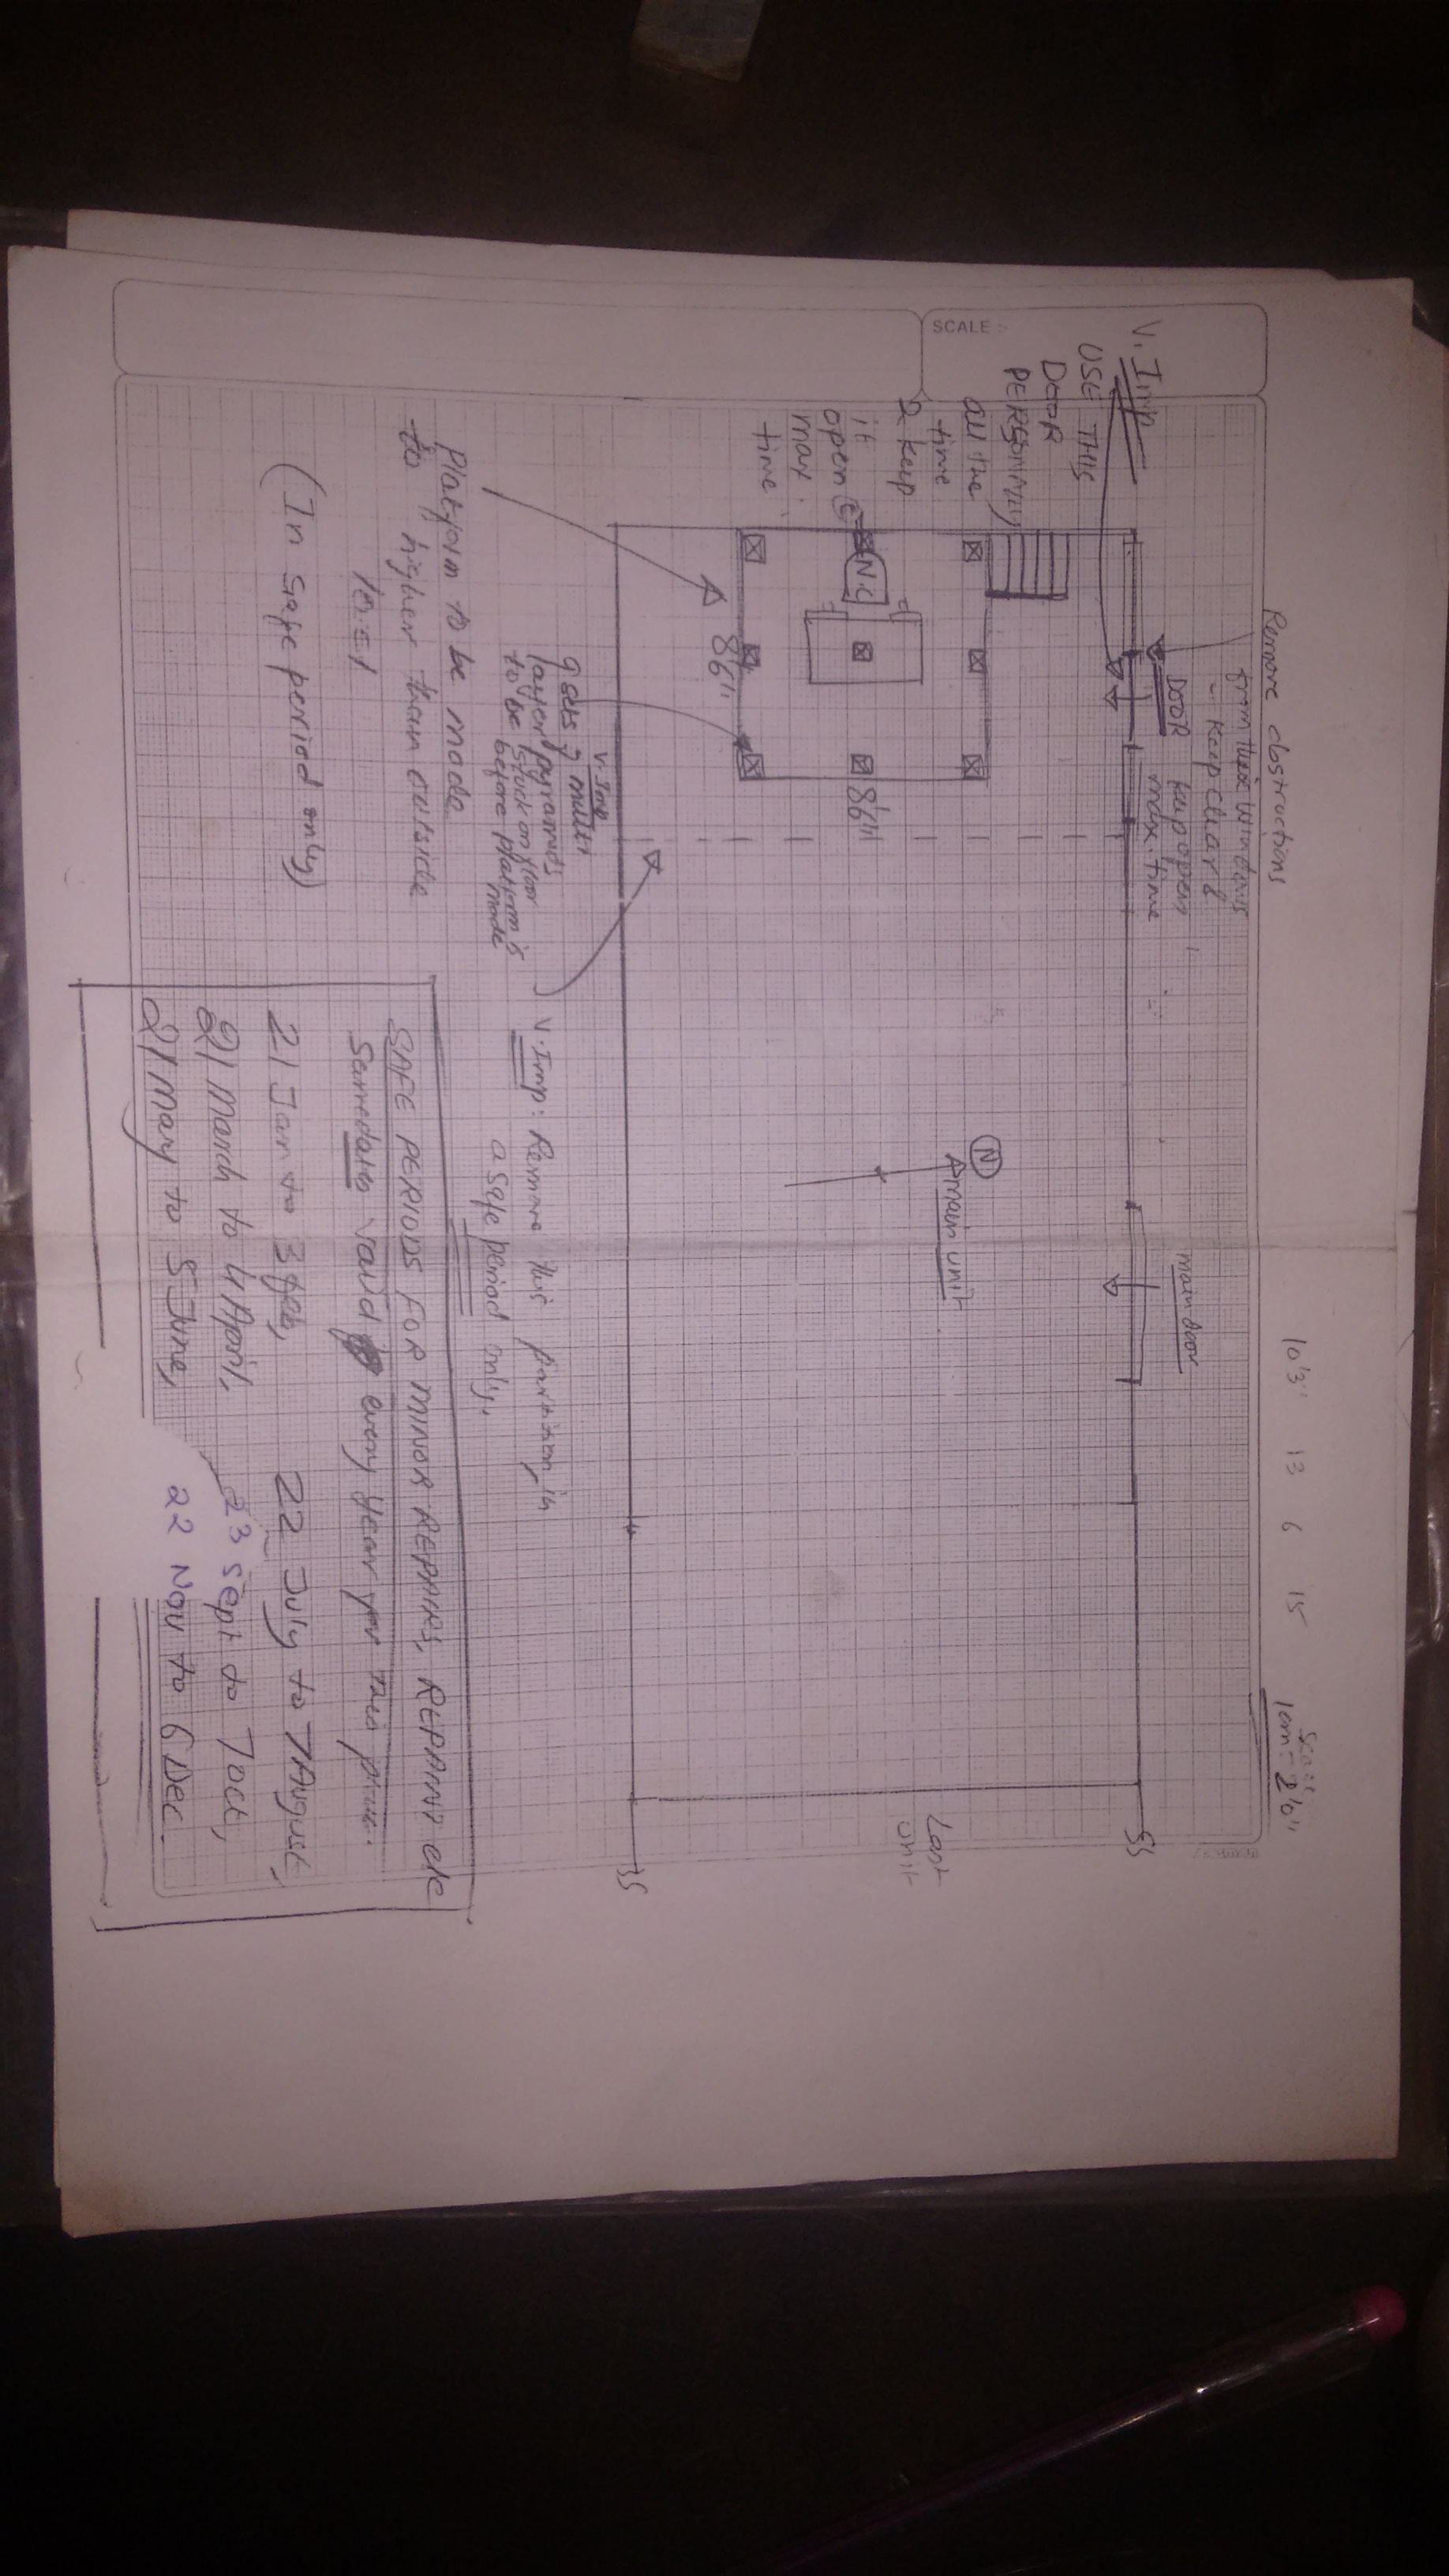 Remove obstructions
from these windows
- keep clear &
keep open
max. time
DOOR
main door
10'3" 13 6 15
Scale
1cm = 2'0"
SCALE :-
V. Imp
USE THIS
DOOR
PERSONALLY
all the
time
& keep
it
open
max.
time
N.C
8'6"
8'6"
N
main unit
Last
unit
V. Imp
9 sets of multi
layer pyramids
to be stuck on floor
before platform is
made
Platform to be made
to higher than outside
level
(In safe period only)
V. Imp: Remove this partition, in
a safe period only.
SAFE PERIODS FOR MINOR REPAIRS, REPAINT etc
Same dates valid every year for this place.
21 Jan to 3 feb, 22 July to 7 August,
21 March to 4 April, 23 Sept to 7 Oct,
21 May to 5 June, 22 Nov to 6 Dec